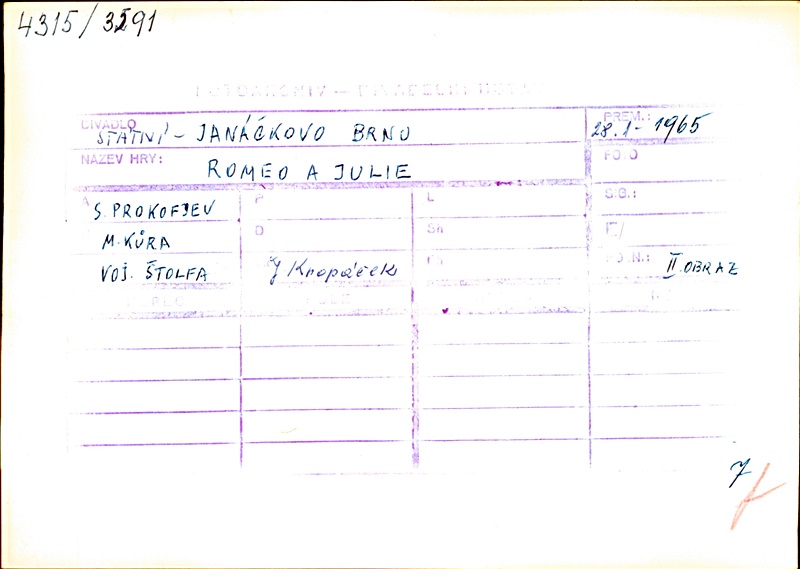 4315/3591
FOTOARCHIV – DIVADELNÍ ÚSTAV
DIVADLO STÁTNÍ – JANÁČKOVO BRNO
PREM.: 28.1 - 1965
NÁZEV HRY: ROMEO A JULIE
FOTO
A S. PROKOFJEV
P
L
SIG.:
M. KŮRA
D
Sh
F/
VOJ. ŠTOLFA
J Knopáček
POZN.: II. OBRAZ
7